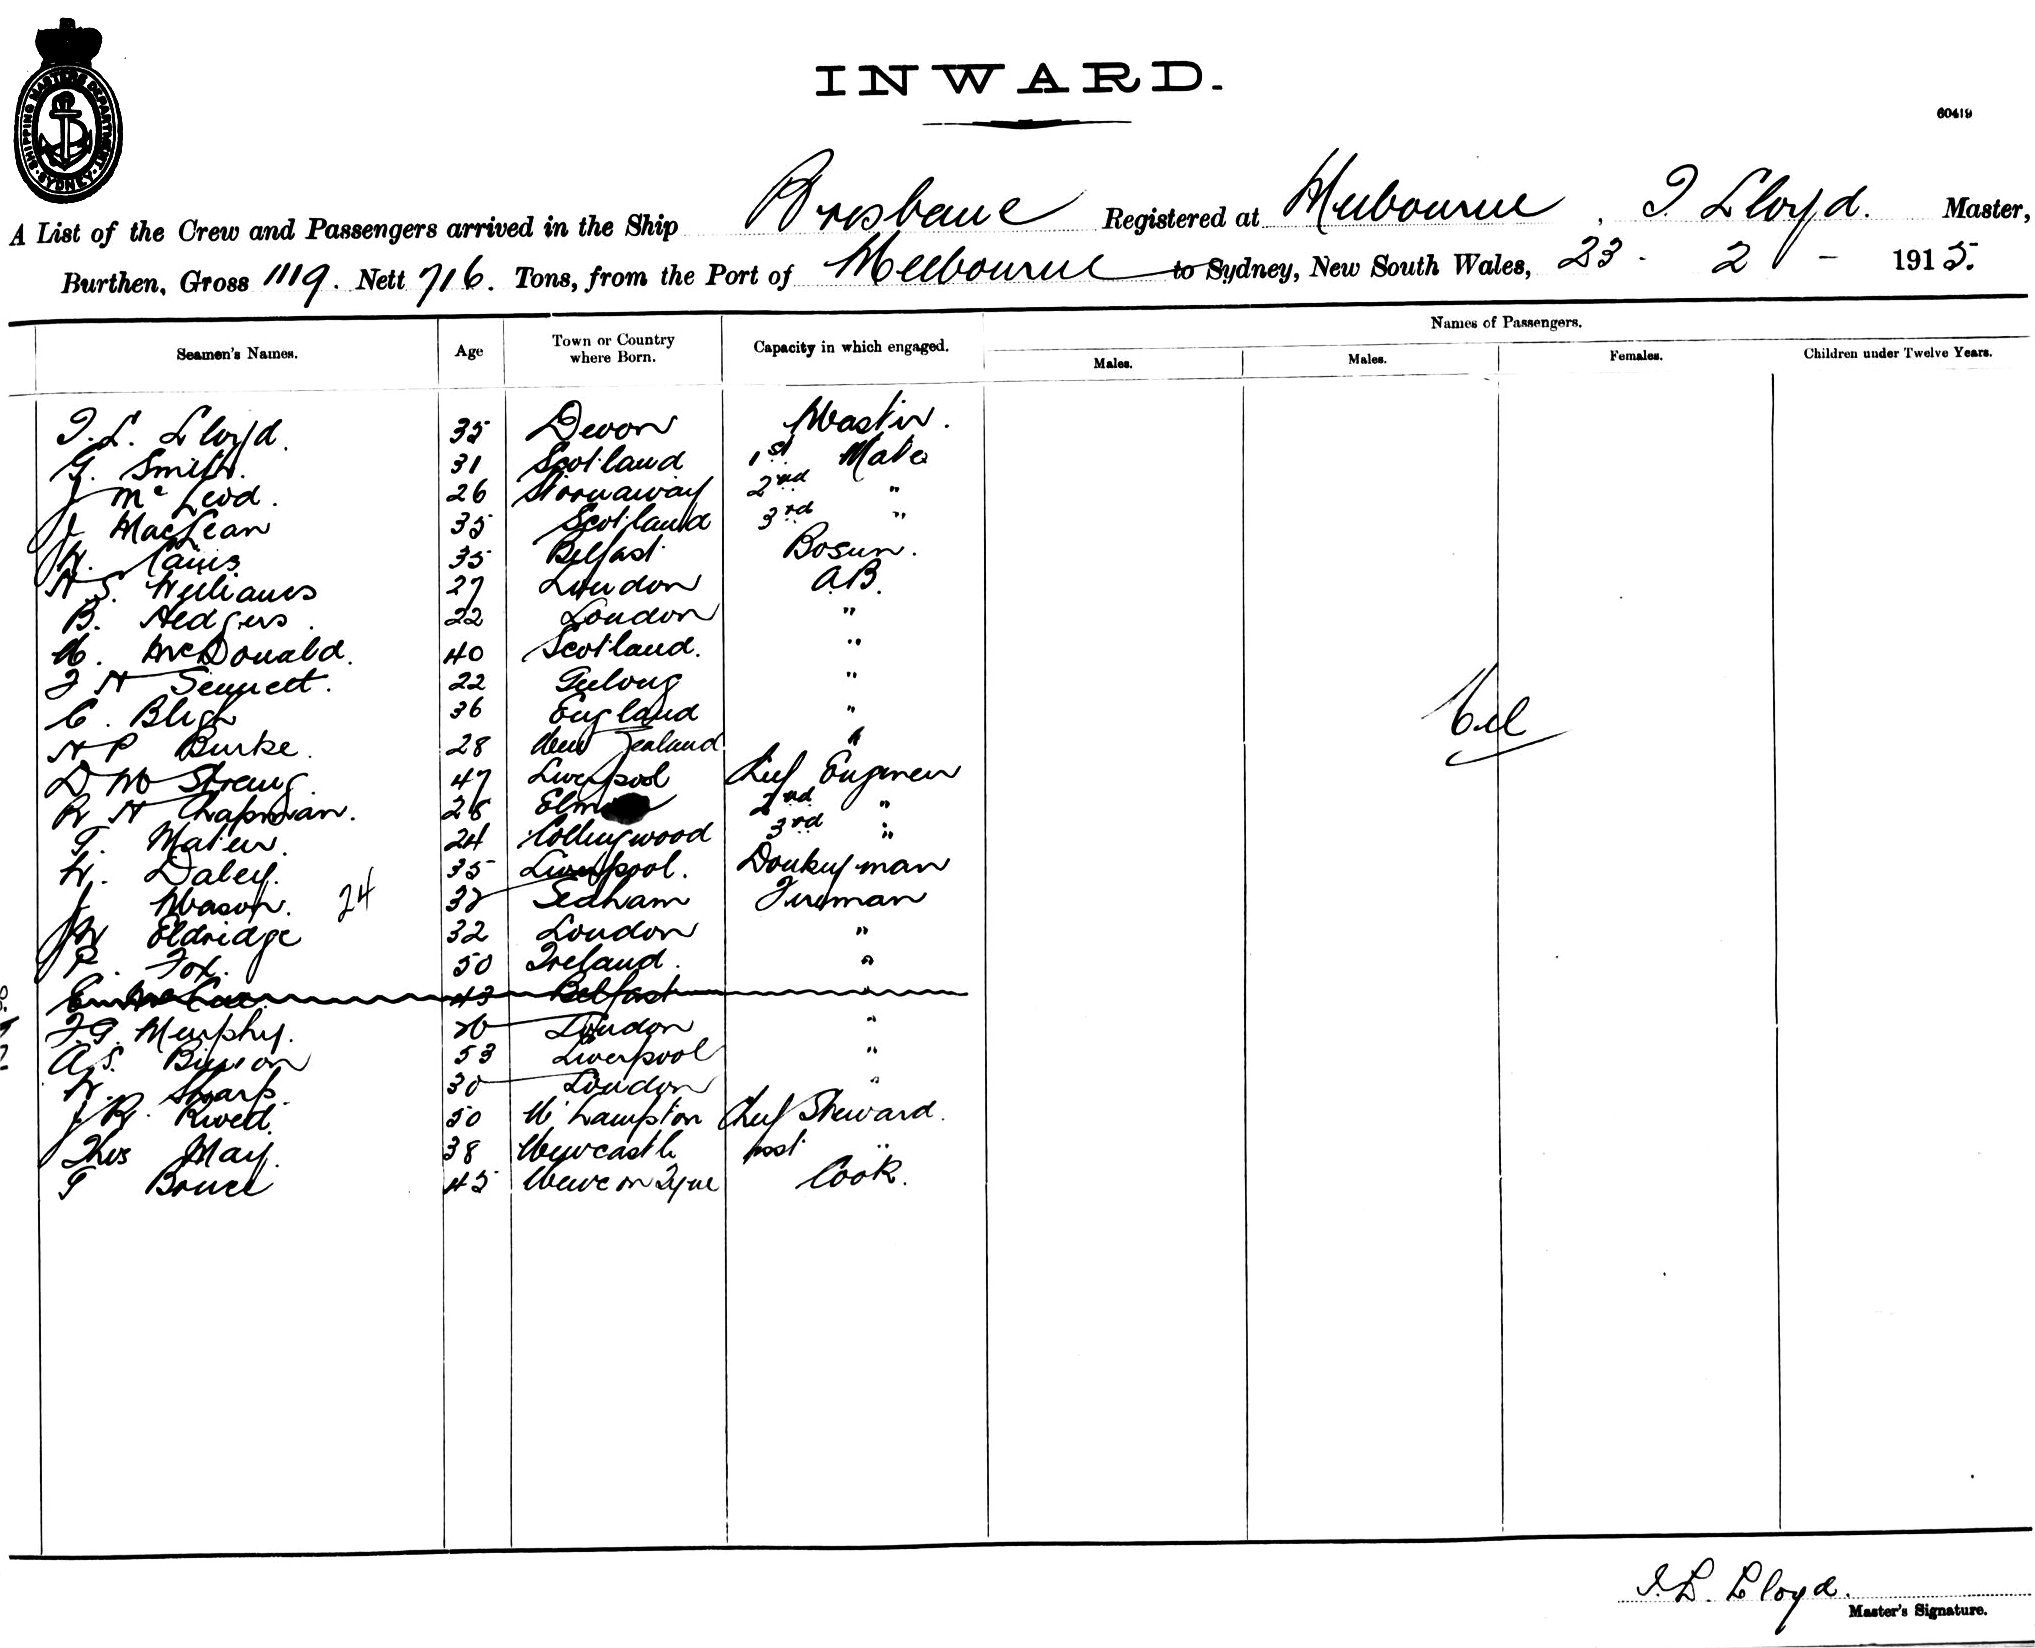 SHIPPING MASTERS DEPARTMENT
SYDNEY
INWARD.
60419
A List of the Crew and Passengers arrived in the Ship Brisbane Registered at Melbourne, I. Lloyd. Master,
Burthen, Gross 1119. Nett 716. Tons, from the Port of Melbourne to Sydney, New South Wales, 23 - 2 - 1915.
Names of Passengers.
Seamen's Names. Age Town or Country where Born. Capacity in which engaged. Males. Males. Females. Children under Twelve Years.
I. L. Lloyd. 35 Devon Master.
G. Smith. 31 Scotland 1st Mate
J McLeod. 26 Stornaway 2nd "
J MacLean 35 Scotland 3rd "
W. Cairns 35 Belfast Bosun.
H. S. Williams 27 London A.B.
B. Hedges. 22 London "
N. McDonald. 40 Scotland. "
J H Sennett. 22 Geelong "
C. Bligh 36 England "
H P Burke. 28 New Zealand "
D M Strang. 47 Liverpool Chief Engineer
R H Chapman. 28 2nd "
T. Mater. 24 Collingwood 3rd "
W. Daley. 35 Liverpool. Donkeyman
J Mason. 24 Seaham Fireman
W Eldridge 32 London "
P. Fox. 50 Ireland. "
43 Belfast "
J.G. Murphy. London "
A. S. 53 Liverpool "
W. Sharp. 30 London "
J R. Rivett. 50 N'hampton Chief Steward.
Thos May. 38 Newcastle asst "
T Bruce 45 Newc on Tyne Cook.
Nil
I. L. Lloyd.
Master's Signature.